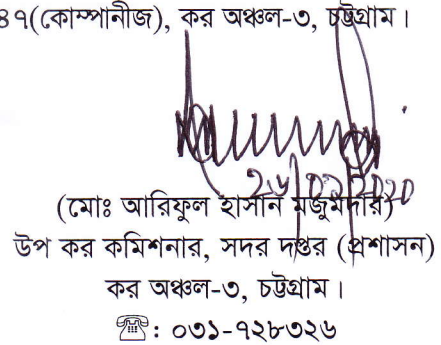 ৪৭(কোম্পানীজ), কর অঞ্চল-৩, চট্টগ্রাম।
(মোঃ আরিফুল হাসান মজুমদার)
উপ কর কমিশনার, সদর দপ্তর (প্রশাসন)
কর অঞ্চল-৩, চট্টগ্রাম।
☎: ০৩১-৭২৮৩২৬